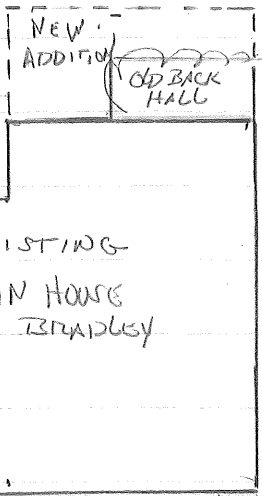 NEW
ADDITION
OLD BACK
HALL
ISTING
N HOUSE
BRADLEY